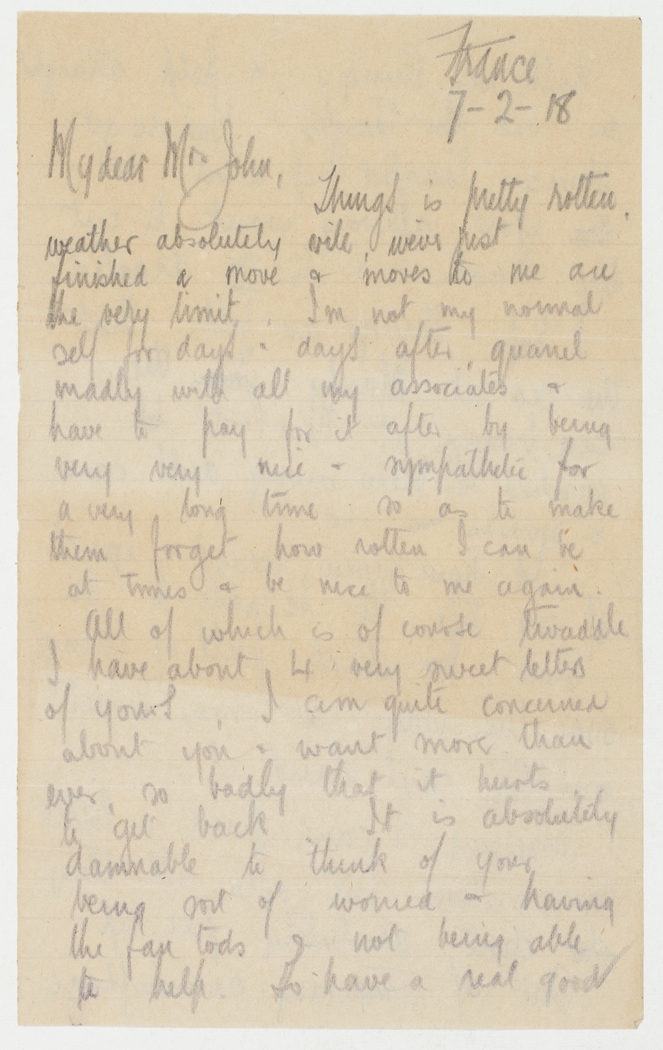 France
7-2-18
My dear Mrs John,
Things is pretty rotten,
weather absolutely vile, we've just
finished a move & moves to me are
the very limit. I'm not my normal
self for days & days after, quarrel
madly with all my associates &
have to pay for it after by being
very very nice & sympathetic for
a very long time so as to make
them forget how rotten I can be
at times & be nice to me again.
All of which is of course twaddle
I have about 4 very sweet letters
of yours, I am quite concerned
about you & want more than
ever, so badly that it hurts,
to get back It is absolutely
damnable to think of your
being sort of worried & having
the fan tods & not being able
to help. To have a real good